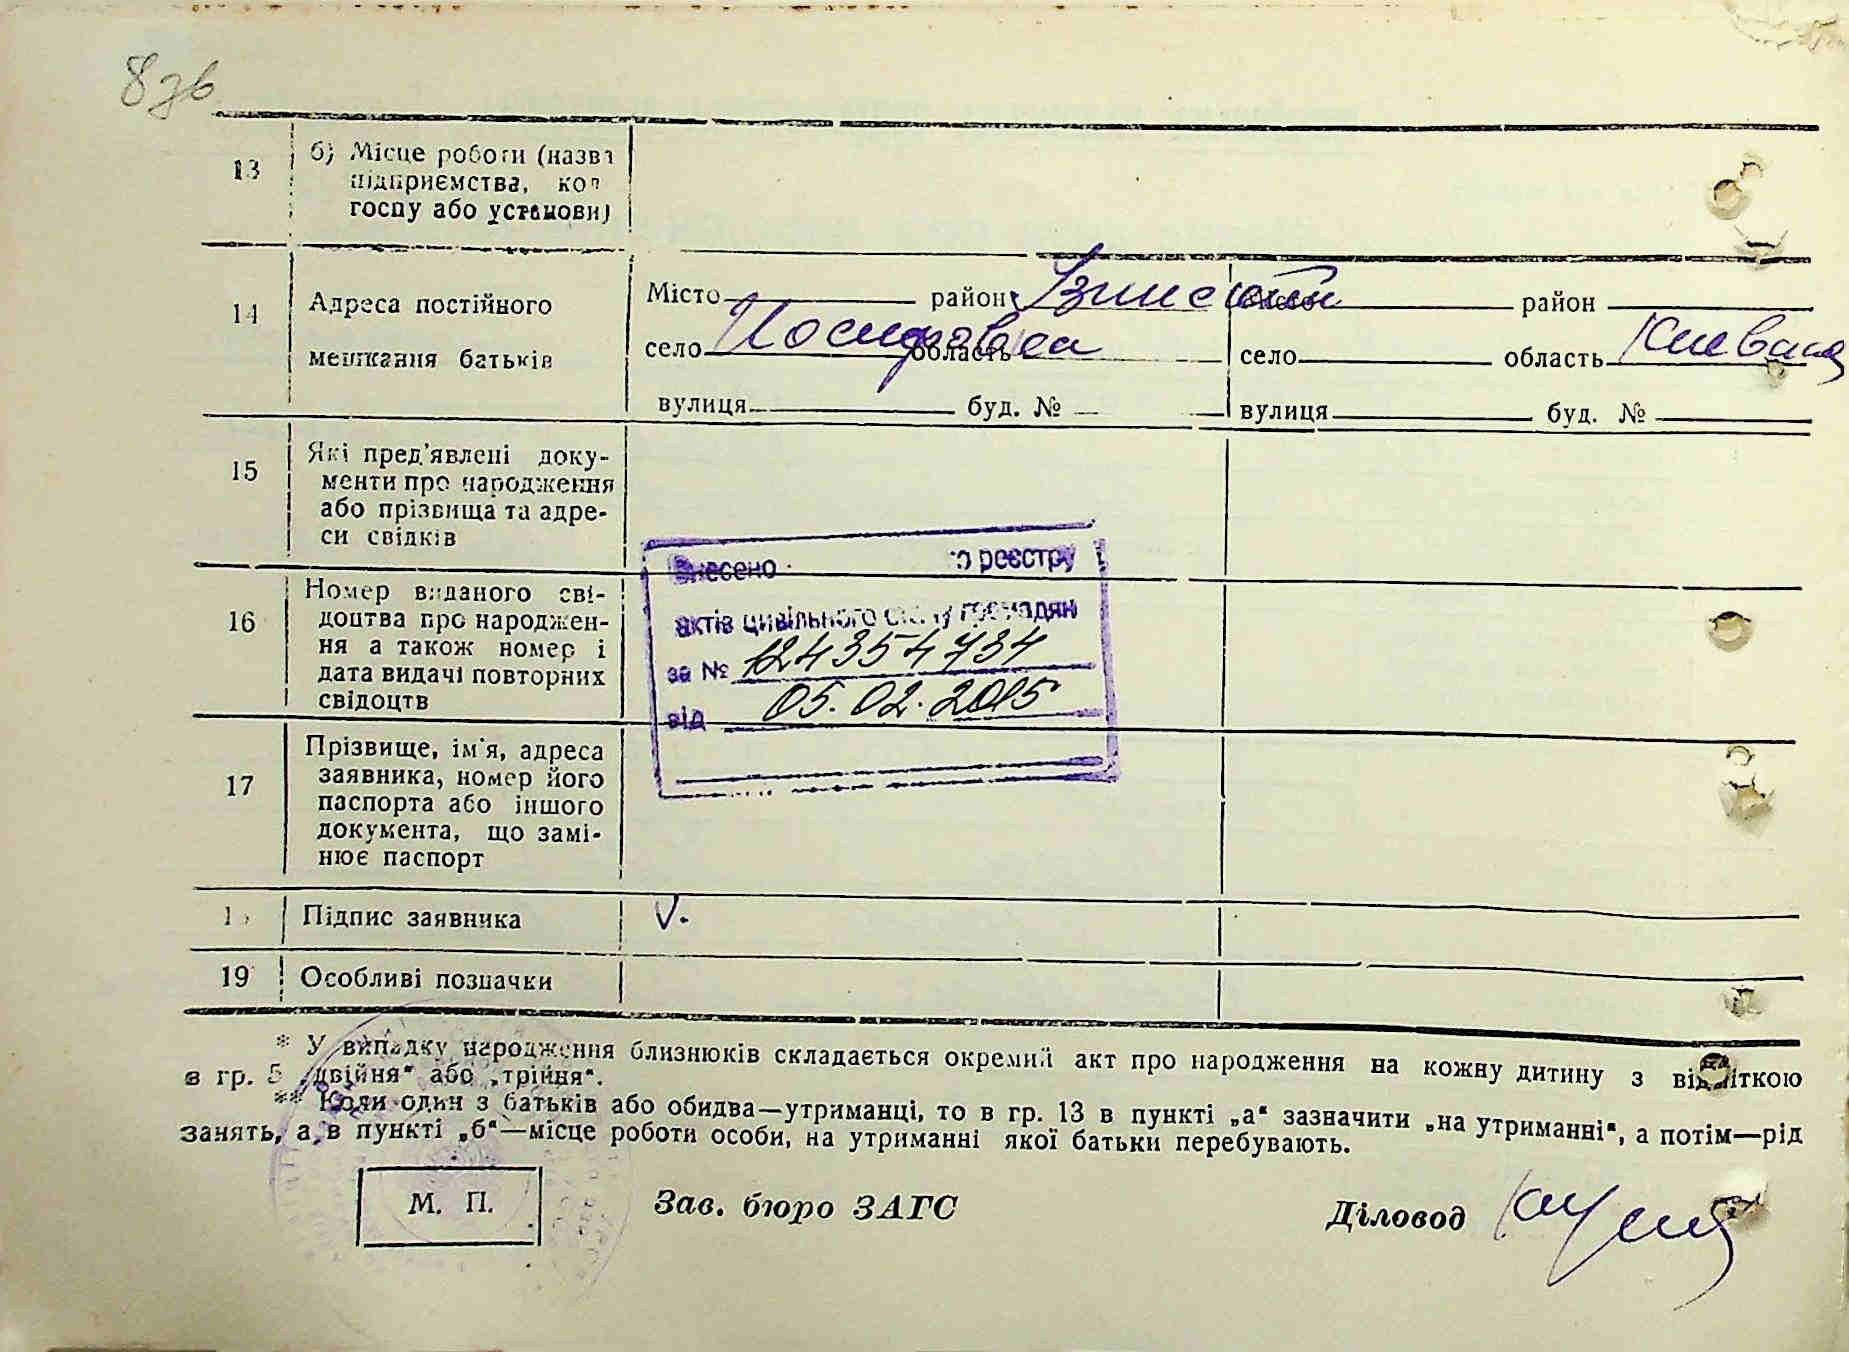 8зв
13 б) Місце роботи (назва
підприємства, кол
госпу або установи)
14 Адреса постійного
мешкання батьків
Місто район місто район
село область село область Київська
вулиця буд. № вулиця буд. №
15 Які пред'явлені доку-
менти про народження
або прізвища та адре-
си свідків
Внесено о реєстру
актів цивільного стану громадян
за № 124354734
від 05.02.2015
16 Номер виданого сві-
доцтва про народжен-
ня а також номер і
дата видачі повторних
свідоцтв
17 Прізвище, ім'я, адреса
заявника, номер його
паспорта або іншого
документа, що замі-
нює паспорт
Підпис заявника V.
19 Особливі позначки
* У випадку народження близнюків складається окремий акт про народження на кожну дитину з відміткою
в гр. 5 „двійня" або „трійня".
** Коли один з батьків або обидва—утриманці, то в гр. 13 в пункті „а" зазначити „на утриманні", а потім—рід
занять, а в пункті „б"—місце роботи особи, на утриманні якої батьки перебувають.
М. П. Зав. бюро ЗАГС Діловод